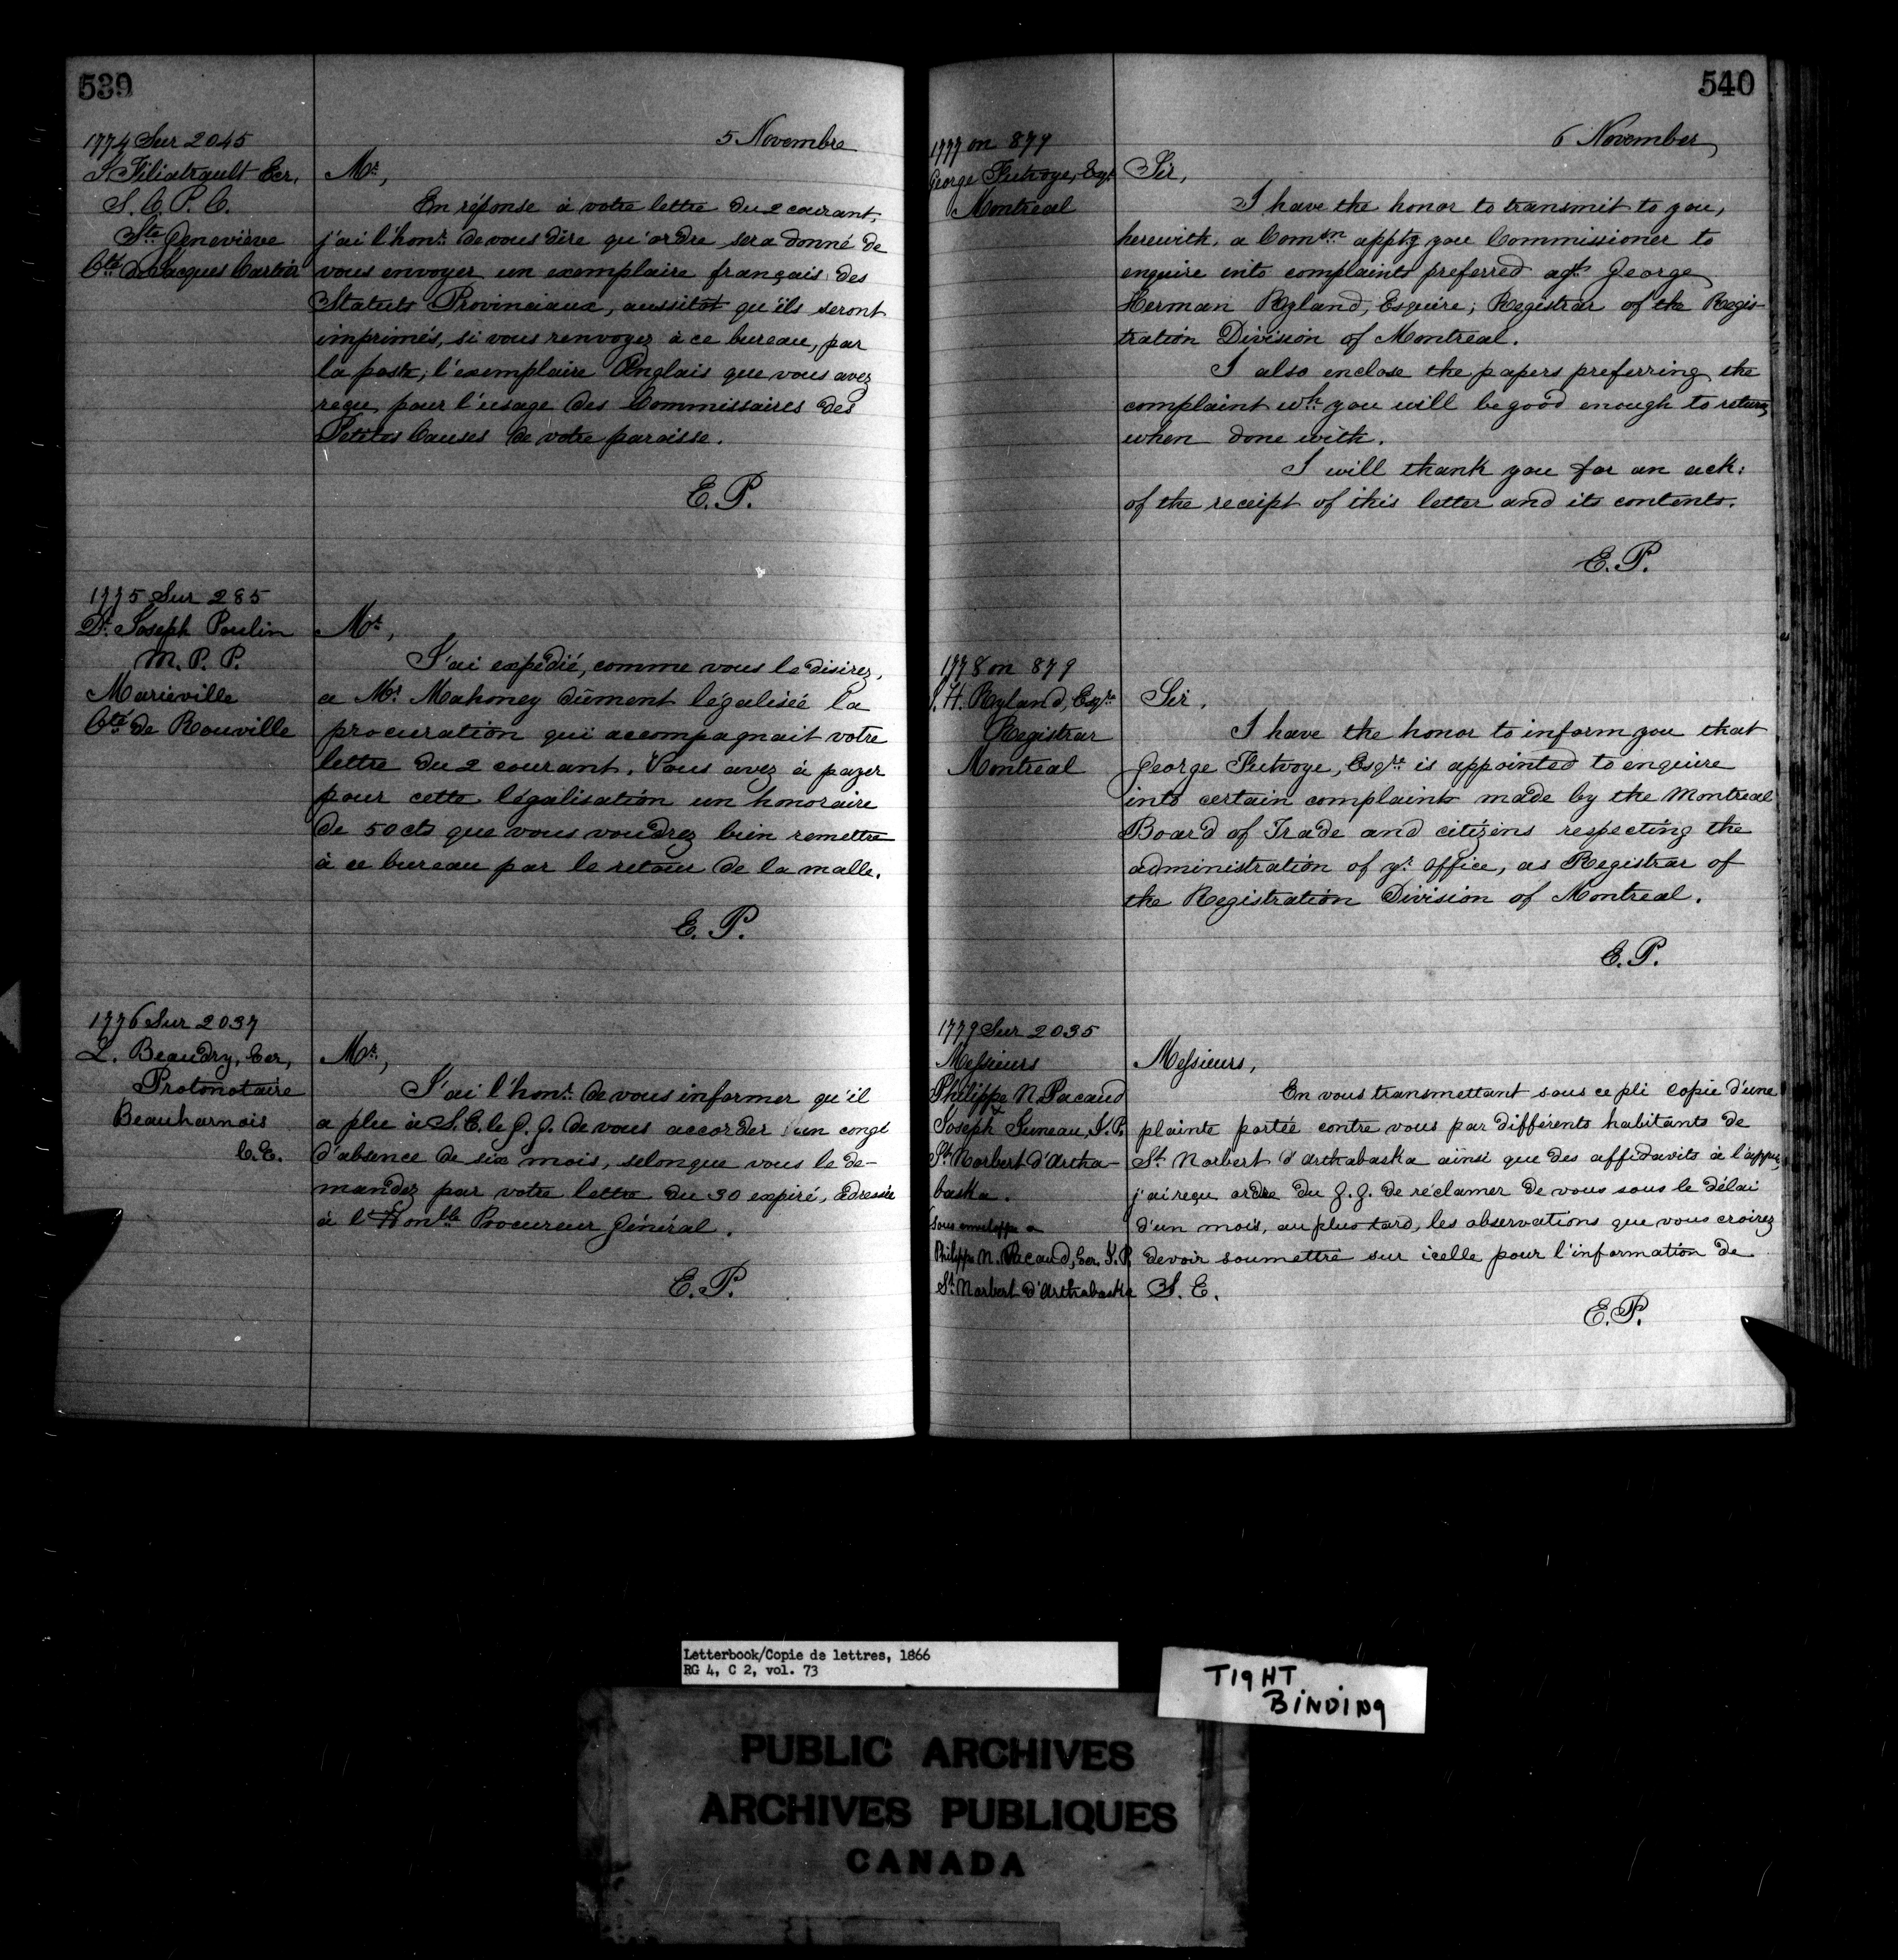 539
5 Novembre
1774 Sur 2045
J Filiatrault Ecr,
S. C. P. C.
Ste Geneviève
Cté de Jacques Cartier
Mr,
En réponse à votre lettre du 2 courant,
j'ai l'honr de vous dire qu'ordre sera donné de
vous envoyer un exemplaire français des
Statuts Provinciaux, aussitot qu'ils seront
imprimés, si vous renvoyez à ce bureau, par
la poste, l'exemplaire Anglais que vous avez
reçu pour l'usage des Commissaires des
Petites Causes de votre paroisse.
E. P.
1775 Sur 285
Dr Joseph Poulin
M. P. P.
Marieville
Cté de Rouville
Mr,
J'ai expédié, comme vous le disirez,
a Mr Mahoney dûment légalisée la
procuration qui accompagnait votre
lettre du 2 courant. Vous avez à payer
pour cette légalisation un honoraire
de 50 cts que vous voudrez bien remettre
à ce bureau par le retour de la malle.
E. P.
1776 Sur 2037
L. Beaudry, Ecr,
Protonotaire
Beauharnois
C. E.
Mr,
J'ai l'honr de vous informer qu'il
a plu à S. E. le G. G. de vous accorder un congé
d'absence de six mois, selon que vous le de-
mandez par votre lettre du 30 expiré, adressée
à l'Honble Procureur Général.
E. P.
540
6 November
1777 on 879
George Futvoye, Esqr
Montreal
Sir,
I have the honor to transmit to you,
herewith, a Comsn apptg you Commissioner to
enquire into complaints preferred agst George
Herman Ryland, Esquire, Registrar of the Regis-
tration Division of Montreal.
I also enclose the papers preferring the
complaint wh you will be good enough to return
when done with.
I will thank you for an ack:
of the receipt of this letter and its contents.
E. P.
1778 on 879
G. H. Ryland, Esqre
Registrar
Montreal
Sir,
I have the honor to inform you that
George Futvoye, Esqre is appointed to enquire
into certain complaints made by the Montreal
Board of Trade and citizens respecting the
administration of yr office, as Registrar of
the Registration Division of Montreal.
E. P.
1779 Sur 2035
Messieurs
Philippe N. Pacaud
&
Joseph Suneau, J. P.
St Norbert d'Artha-
baska.
Sous enveloppe a
Philippe N. Pacaud, Ecr. J. P.
St Norbert d'Arthabaska
Messieurs,
En vous transmettant sous ce pli copie d'une
plainte portée contre vous par différents habitants de
St Norbert d'Arthabaska ainsi que des affidavits à l'appui,
j'ai reçu ordre du G. G. de réclamer de vous sous le délai
d'un mois, au plus tard, les observations que vous croirez
devoir soumettre sur icelle pour l'information de
S. E.
E. P.
Letterbook/Copie de lettres, 1866
RG 4, C 2, vol. 73
TIGHT
BINDING
PUBLIC ARCHIVES
ARCHIVES PUBLIQUES
CANADA